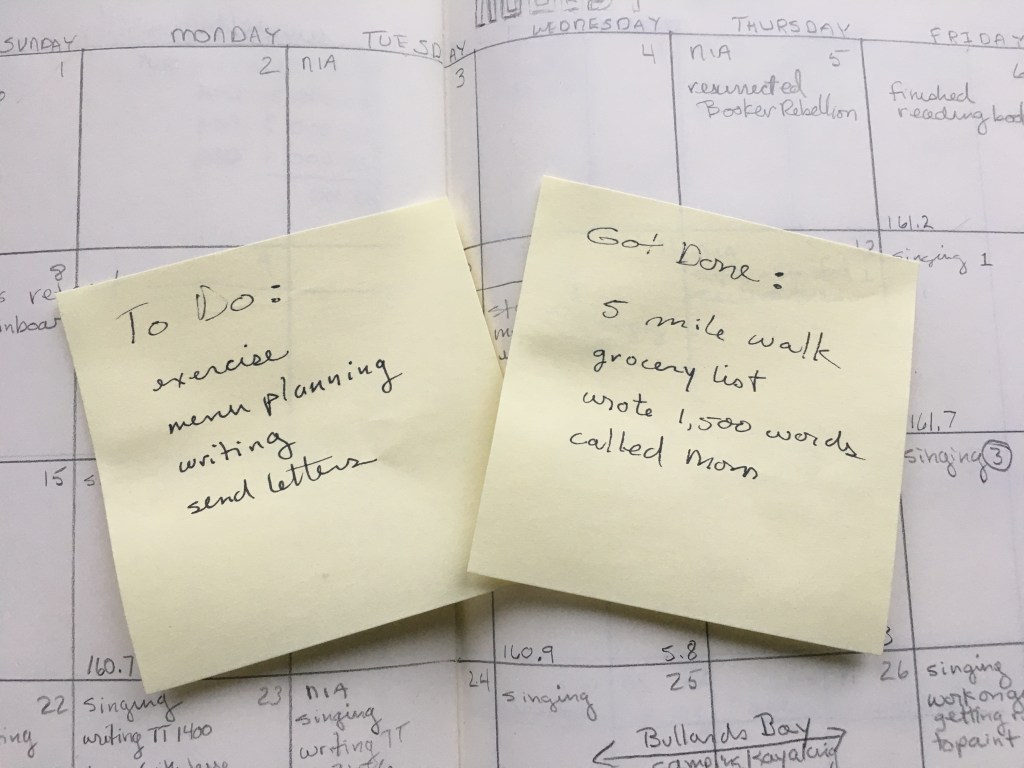 SUNDAY MONDAY TUESDAY WEDNESDAY THURSDAY FRIDAY
1
2
NIA 3
4
NIA 5
resurrected
Booker Rebellion
finished
reading
161.2
8
singing 1
To Do:
exercise
menu planning
writing
send letters
Got Done:
5 mile walk
grocery list
wrote 1,500 words
called Mom
161.7
15
singing 3
160.7
160.9
5.8
22
singing 23
writing TT 1400
NIA 24
singing
writing TT
singing 25
Bullards Bay
camping kayaking
26
singing
work on
getting
to paint